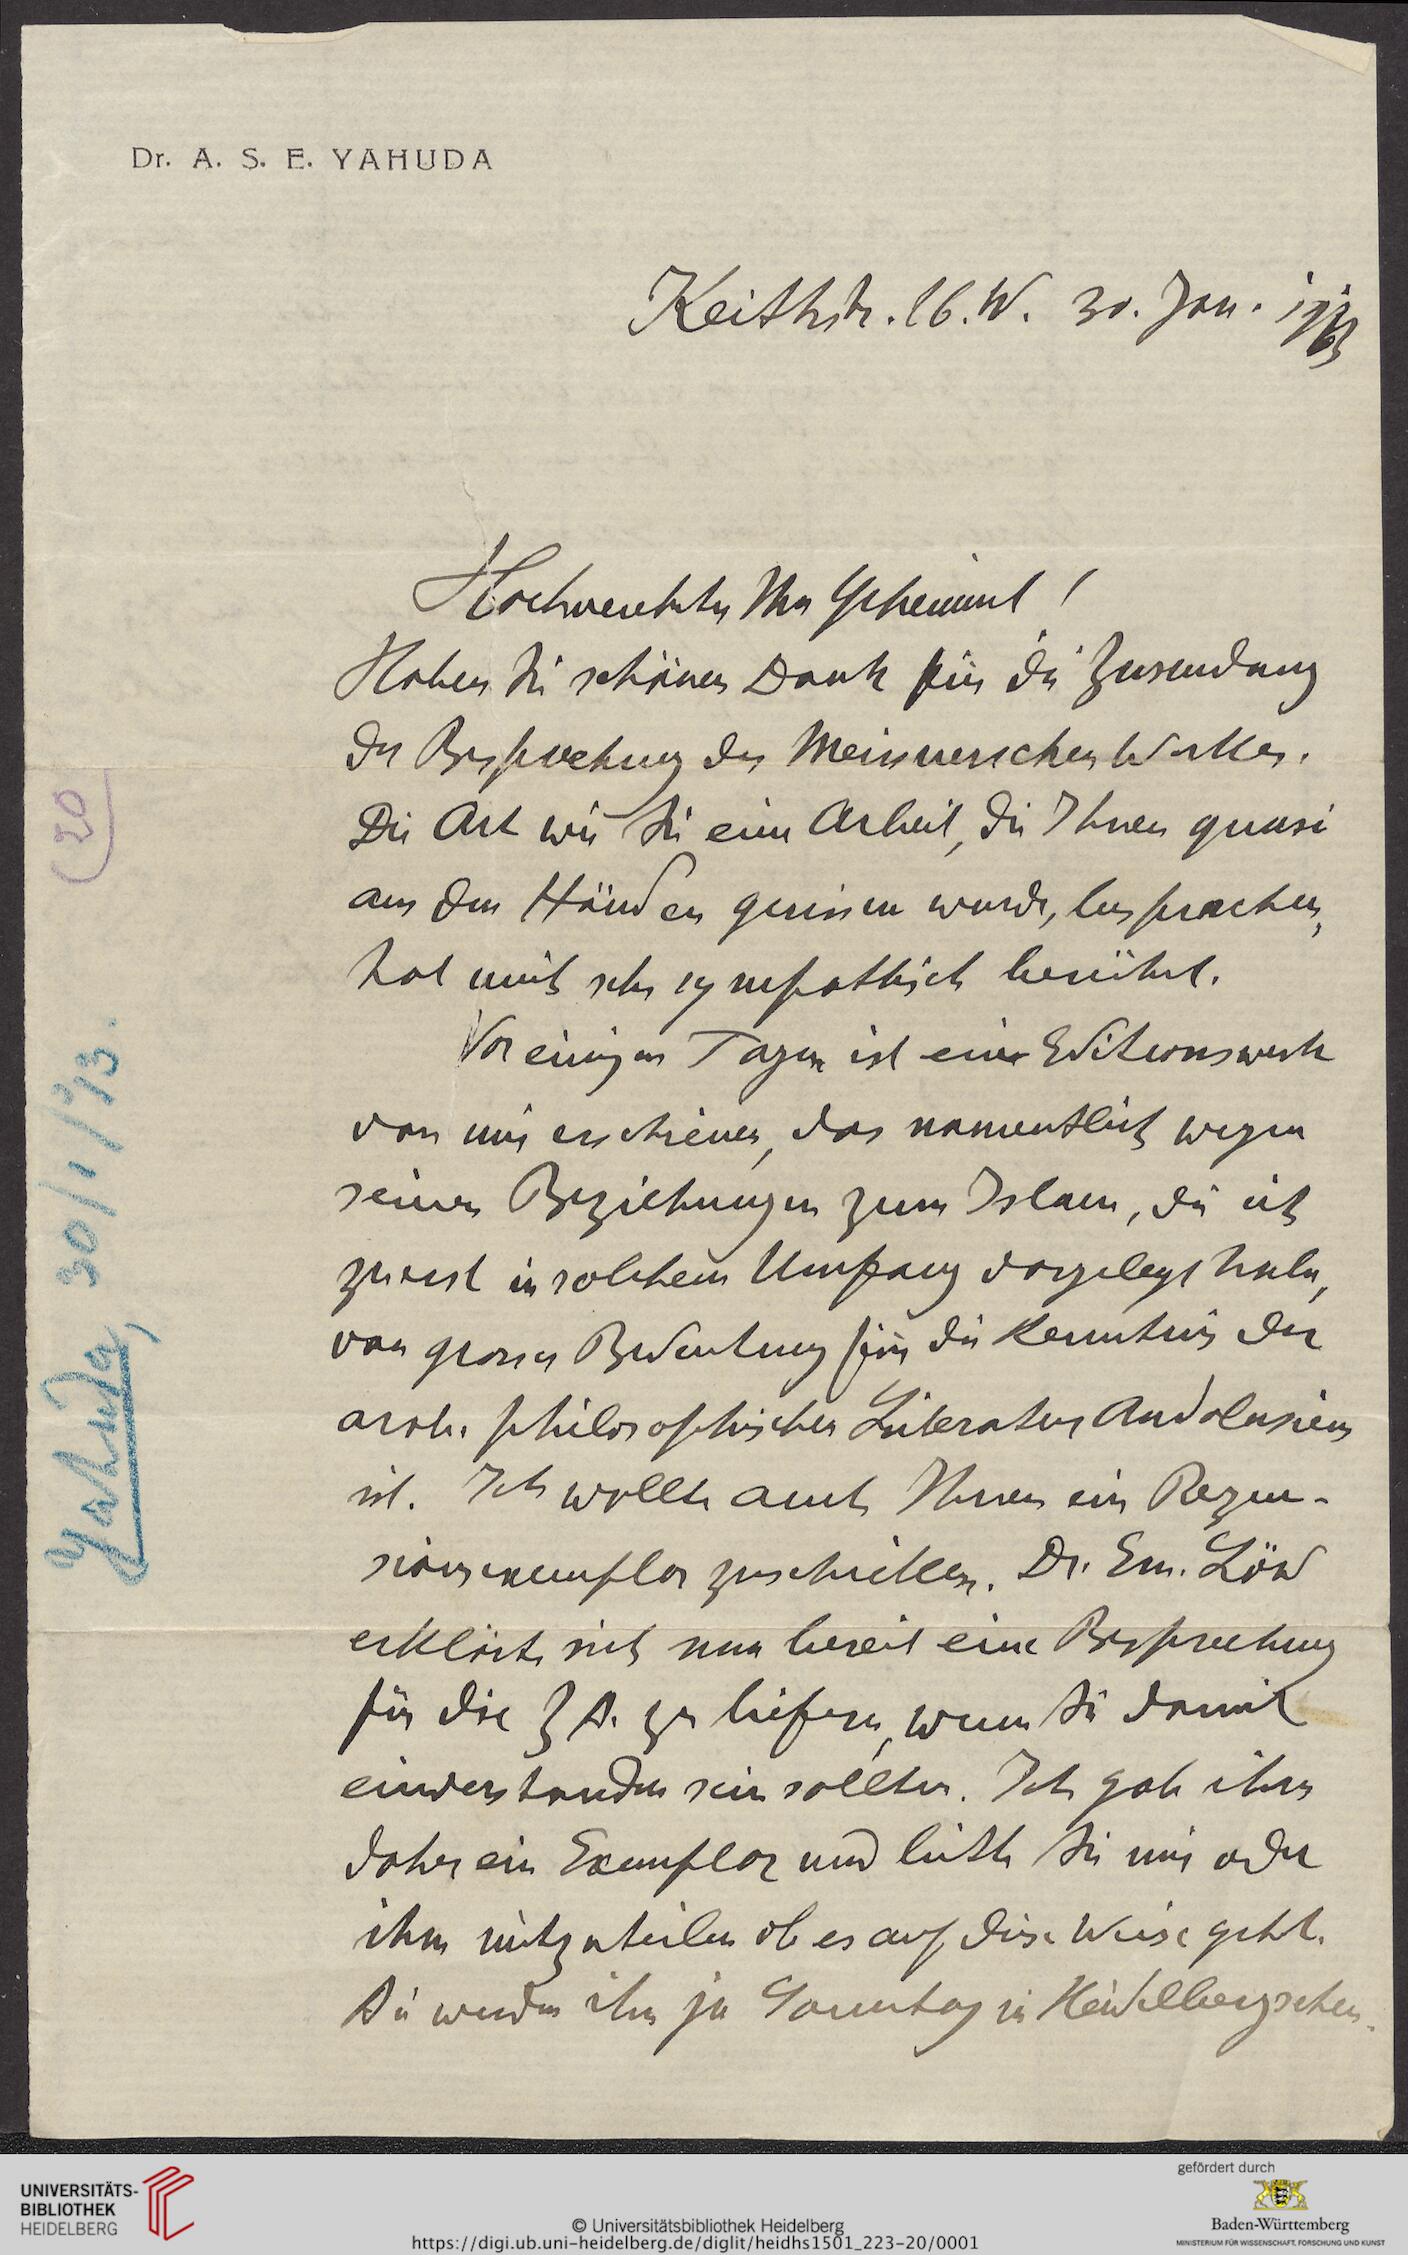 Dr. A. S. E. YAHUDA
Keithstr. 16. W. 30. Jan. 1913
Hochverehrter Herr Geheimrat!
Haben Sie schönen Dank für die Zusendung
der Besprechung des Meissnerschen Werkes.
Die Art wie Sie eine Arbeit, die Ihnen quasi
aus den Händen gerissen wurde, besprachen,
hat mich sehr sympathisch berührt.
Vor einigen Tagen ist ein Editionswerk
von mir erschienen, das namentlich wegen
seiner Beziehungen zum Islam, die ich
zuerst in solchem Umfang dargelegt habe,
von grosser Bedeutung für die Kenntnis der
arab. philosophischen Literatur Andalusiens
ist. Ich wollte auch Ihnen ein Rezen-
sionsexemplar zuschicken. Dr. Em. Löw
erklärte sich nun bereit eine Besprechung
für die ZA. zu liefern, wenn Sie damit
einverstanden sein sollten. Ich gab ihm
daher ein Exemplar und bitte Sie mir oder
ihm mitzuteilen ob es auf diese Weise geht.
Sie werden ihn ja Sonntag in Heidelberg sehen.
(20)
Yahuda, 30/1/'13.
UNIVERSITÄTS-
BIBLIOTHEK
HEIDELBERG
© Universitätsbibliothek Heidelberg
https://digi.ub.uni-heidelberg.de/diglit/heidhs1501_223-20/0001
gefördert durch
Baden-Württemberg
MINISTERIUM FÜR WISSENSCHAFT, FORSCHUNG UND KUNST